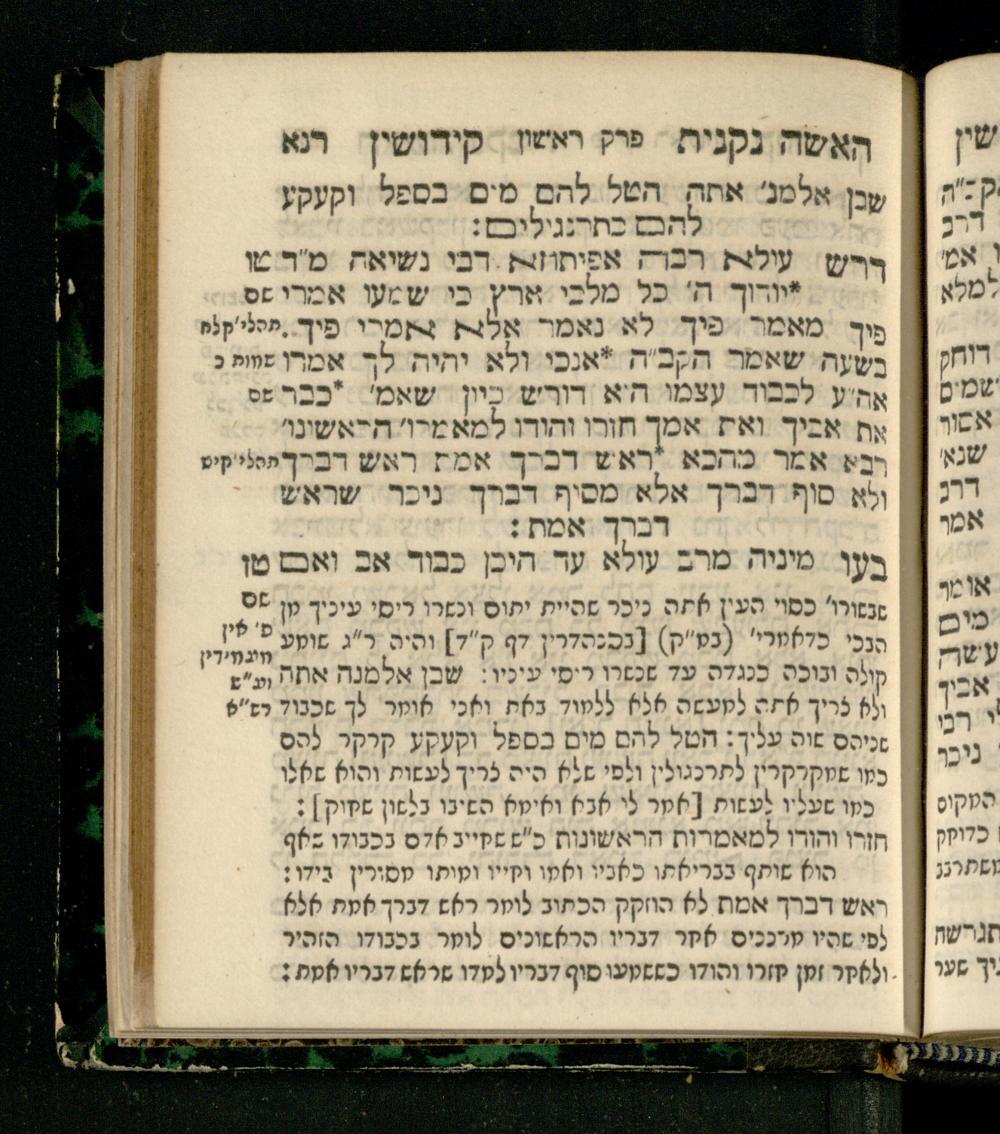 האשה נקנית פרק ראשון קידושין רנא
שבן אלמנ' אתה הטל להם מים בספל וקעקע
להם כתרנגולים:
דרש עולא רבה אפיתחא דבי נשיאה מ"ד טו
*יודוך ה' כל מלכי ארץ כי שמעו אמרי שם
פיך מאמר פיך לא נאמר אלא אמרי פיך. תהלי' קלח
בשעה שאמר הקב"ה *אנכי ולא יהיה לך אמרו שמות כ
אה"ע לכבוד עצמו הוא דורש כיון שאמ' *כבר שם
את אביך ואת אמך חזרו והודו למאמרו' הראשונו'
רבא אמר מהכא *ראש דברך אמת ראש דברך תהלי' קיט
ולא סוף דברך אלא מסוף דברך ניכר שראש
דברך אמת:
בעו מיניה מרב עולא עד היכן כבוד אב ואם טז
שבשורו' כסוי העין אתה ניכר שהיית יתום ונשרו ריסי עיניך מן שם
הבכי כדאמרי' (במ"ק) [בסנהדרין דף ק"ד] והיה ר"ג שומע פ' אין
קולה ובוכה כנגדה עד שנשרו ריסי עיניו: שבן אלמנה אתה
ולא צריך אתה למעשה אלא ללמוד באת ואני אומר לך שכבוד רש"א
שניהם שוה עליך: הטל להם מים בספל וקעקע קרקר להם
כמו שמקרקרין לתרנגולין ולפי שלא היה צריך לעשות והוא שאלו
כמו שעליו לעשות [אמר לי אבא ואימא השיבו בלשון שחוק]:
חזרו והודו למאמרות הראשונות כ"ש שחייב אדם בכבודו שאף
הוא שותף בבריאתו כאביו ואמו וחייו ומותו מסורין בידו:
ראש דברך אמת לא הוזקק הכתוב לומר ראש דברך אמת אלא
לפי שהיו מרננים אחר דבריו הראשונים לומר בכבודו הזהיר
ולאחר זמן חזרו והודו כששמעו סוף דבריו למדו שראש דבריו אמת: